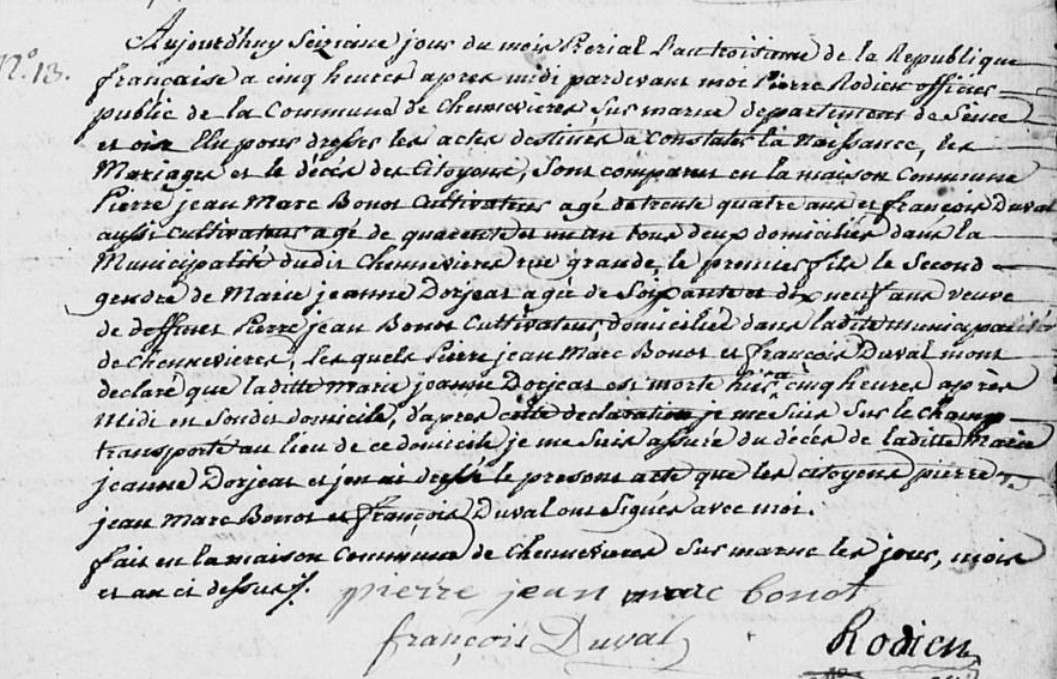 N.º 13.
Aujourdhuy Seiziane jour du mois Prerial L'an troisiame de la Republique
française a cinq heures apres midi pardevant moi Pierre Rodien officier
public de la Commune de Chennevieres sur marne departement de Seine
et oise Elu pour dresser les actes destinés a Constater la Naissance, les
Mariages et le décés des Citoyens, Sont comparus en la maison Commune
Pierre jean Marc Bonot Cultivateur agé de trente quatre ans et françois Duval
aussi cultivateur agé de quarente et un an tous deux domiciliés dans la
Municipalité dudit Chennevieres rue grande, le premier fils le Second
gendre de Marie jeanne Dorjeat agée de Soixante et dix neuf ans veuve
de deffunt Pierre jean Bonot Cultivateur domicilié dans ladite municipalité
de Chennevieres, les quels Pierre jean Marc Bonot et françois Duval mont
declaré que laditte Marie jeanne Dorjeat est morte hier a cinq heures après
Midi en Sondit domicile, d'apres cette declaration je me suis Sur le Champ
transporté au lieu de ce domicile, je me suis assuré du décés de laditte Marie
jeanne Dorjeat et j'en ai dressé le present acte que les citoyens pierre
jean Marc Bonot et françois Duval ont Signés avec moi.
fait en la maison Commune de Chennevieres sur marne les jour, mois
et an ci dessus.
pierre jean marc bonot
françois Duval
Rodien